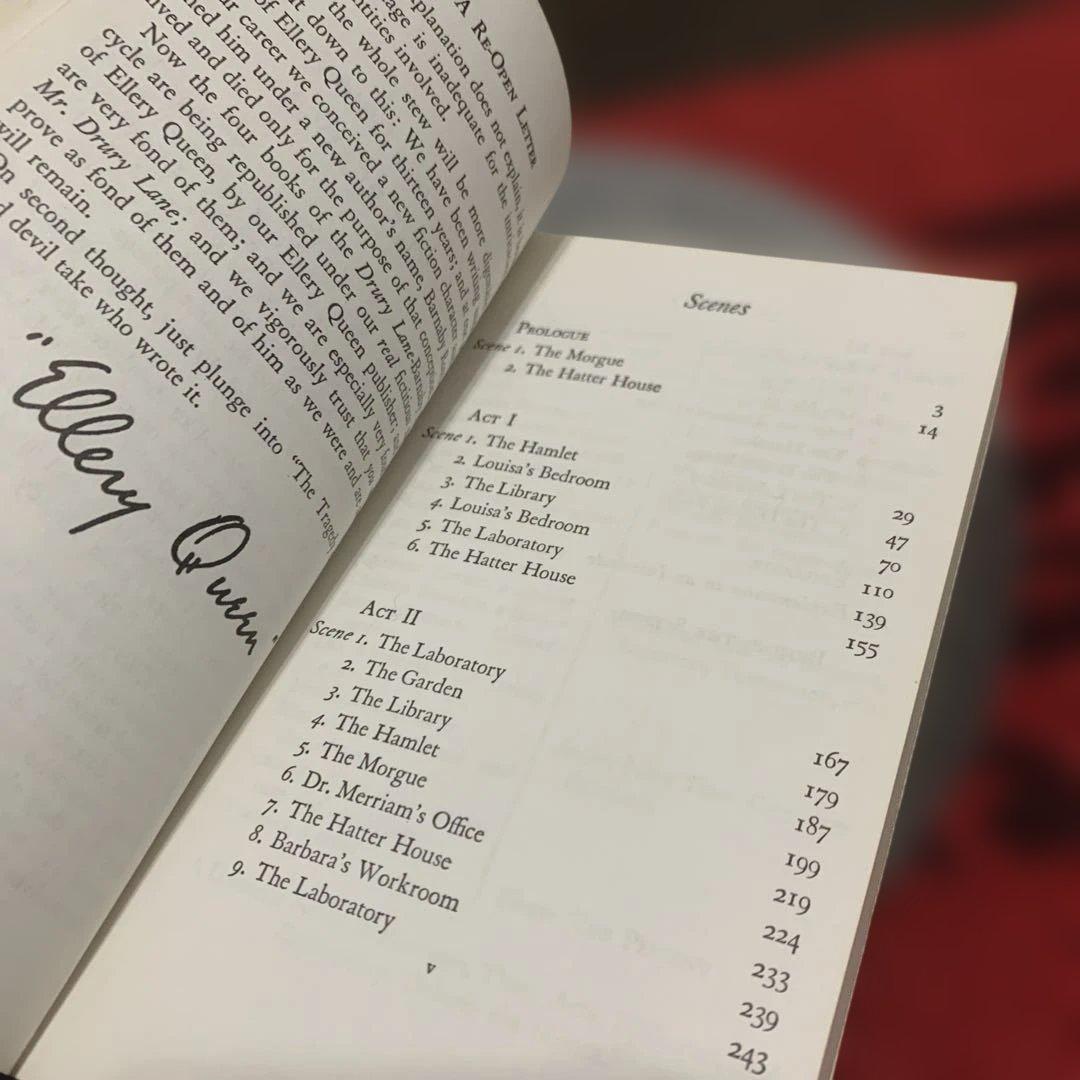 A RE-OPEN LETTER
xplanation does not explain, it is
age is inadequate for the
ntities involved.
the whole stew will be more
t down to this: We have been writing
of Ellery Queen for thirteen years; and at
ur career we conceived a new fiction character
hed him under a new author's name, Barnaby
ved and died only for the purpose of that
Now the four books of the Drury Lane-Barnaby
cycle are being republished under our real fictitious
of Ellery Queen, by our Ellery Queen publisher;
are very fond of them; and we are especially very
Mr. Drury Lane; and we vigorously trust that you
prove as fond of them and of him as we were and are
will remain.
On second thought, just plunge into "The Tragedy
d devil take who wrote it.
"Ellery Queen"
Scenes
PROLOGUE
Scene 1. The Morgue 3
2. The Hatter House 14
ACT I
Scene 1. The Hamlet 29
2. Louisa's Bedroom 47
3. The Library 70
4. Louisa's Bedroom 110
5. The Laboratory 139
6. The Hatter House 155
ACT II
Scene 1. The Laboratory 167
2. The Garden 179
3. The Library 187
4. The Hamlet 199
5. The Morgue 219
6. Dr. Merriam's Office 224
7. The Hatter House 233
8. Barbara's Workroom 239
9. The Laboratory 243
v